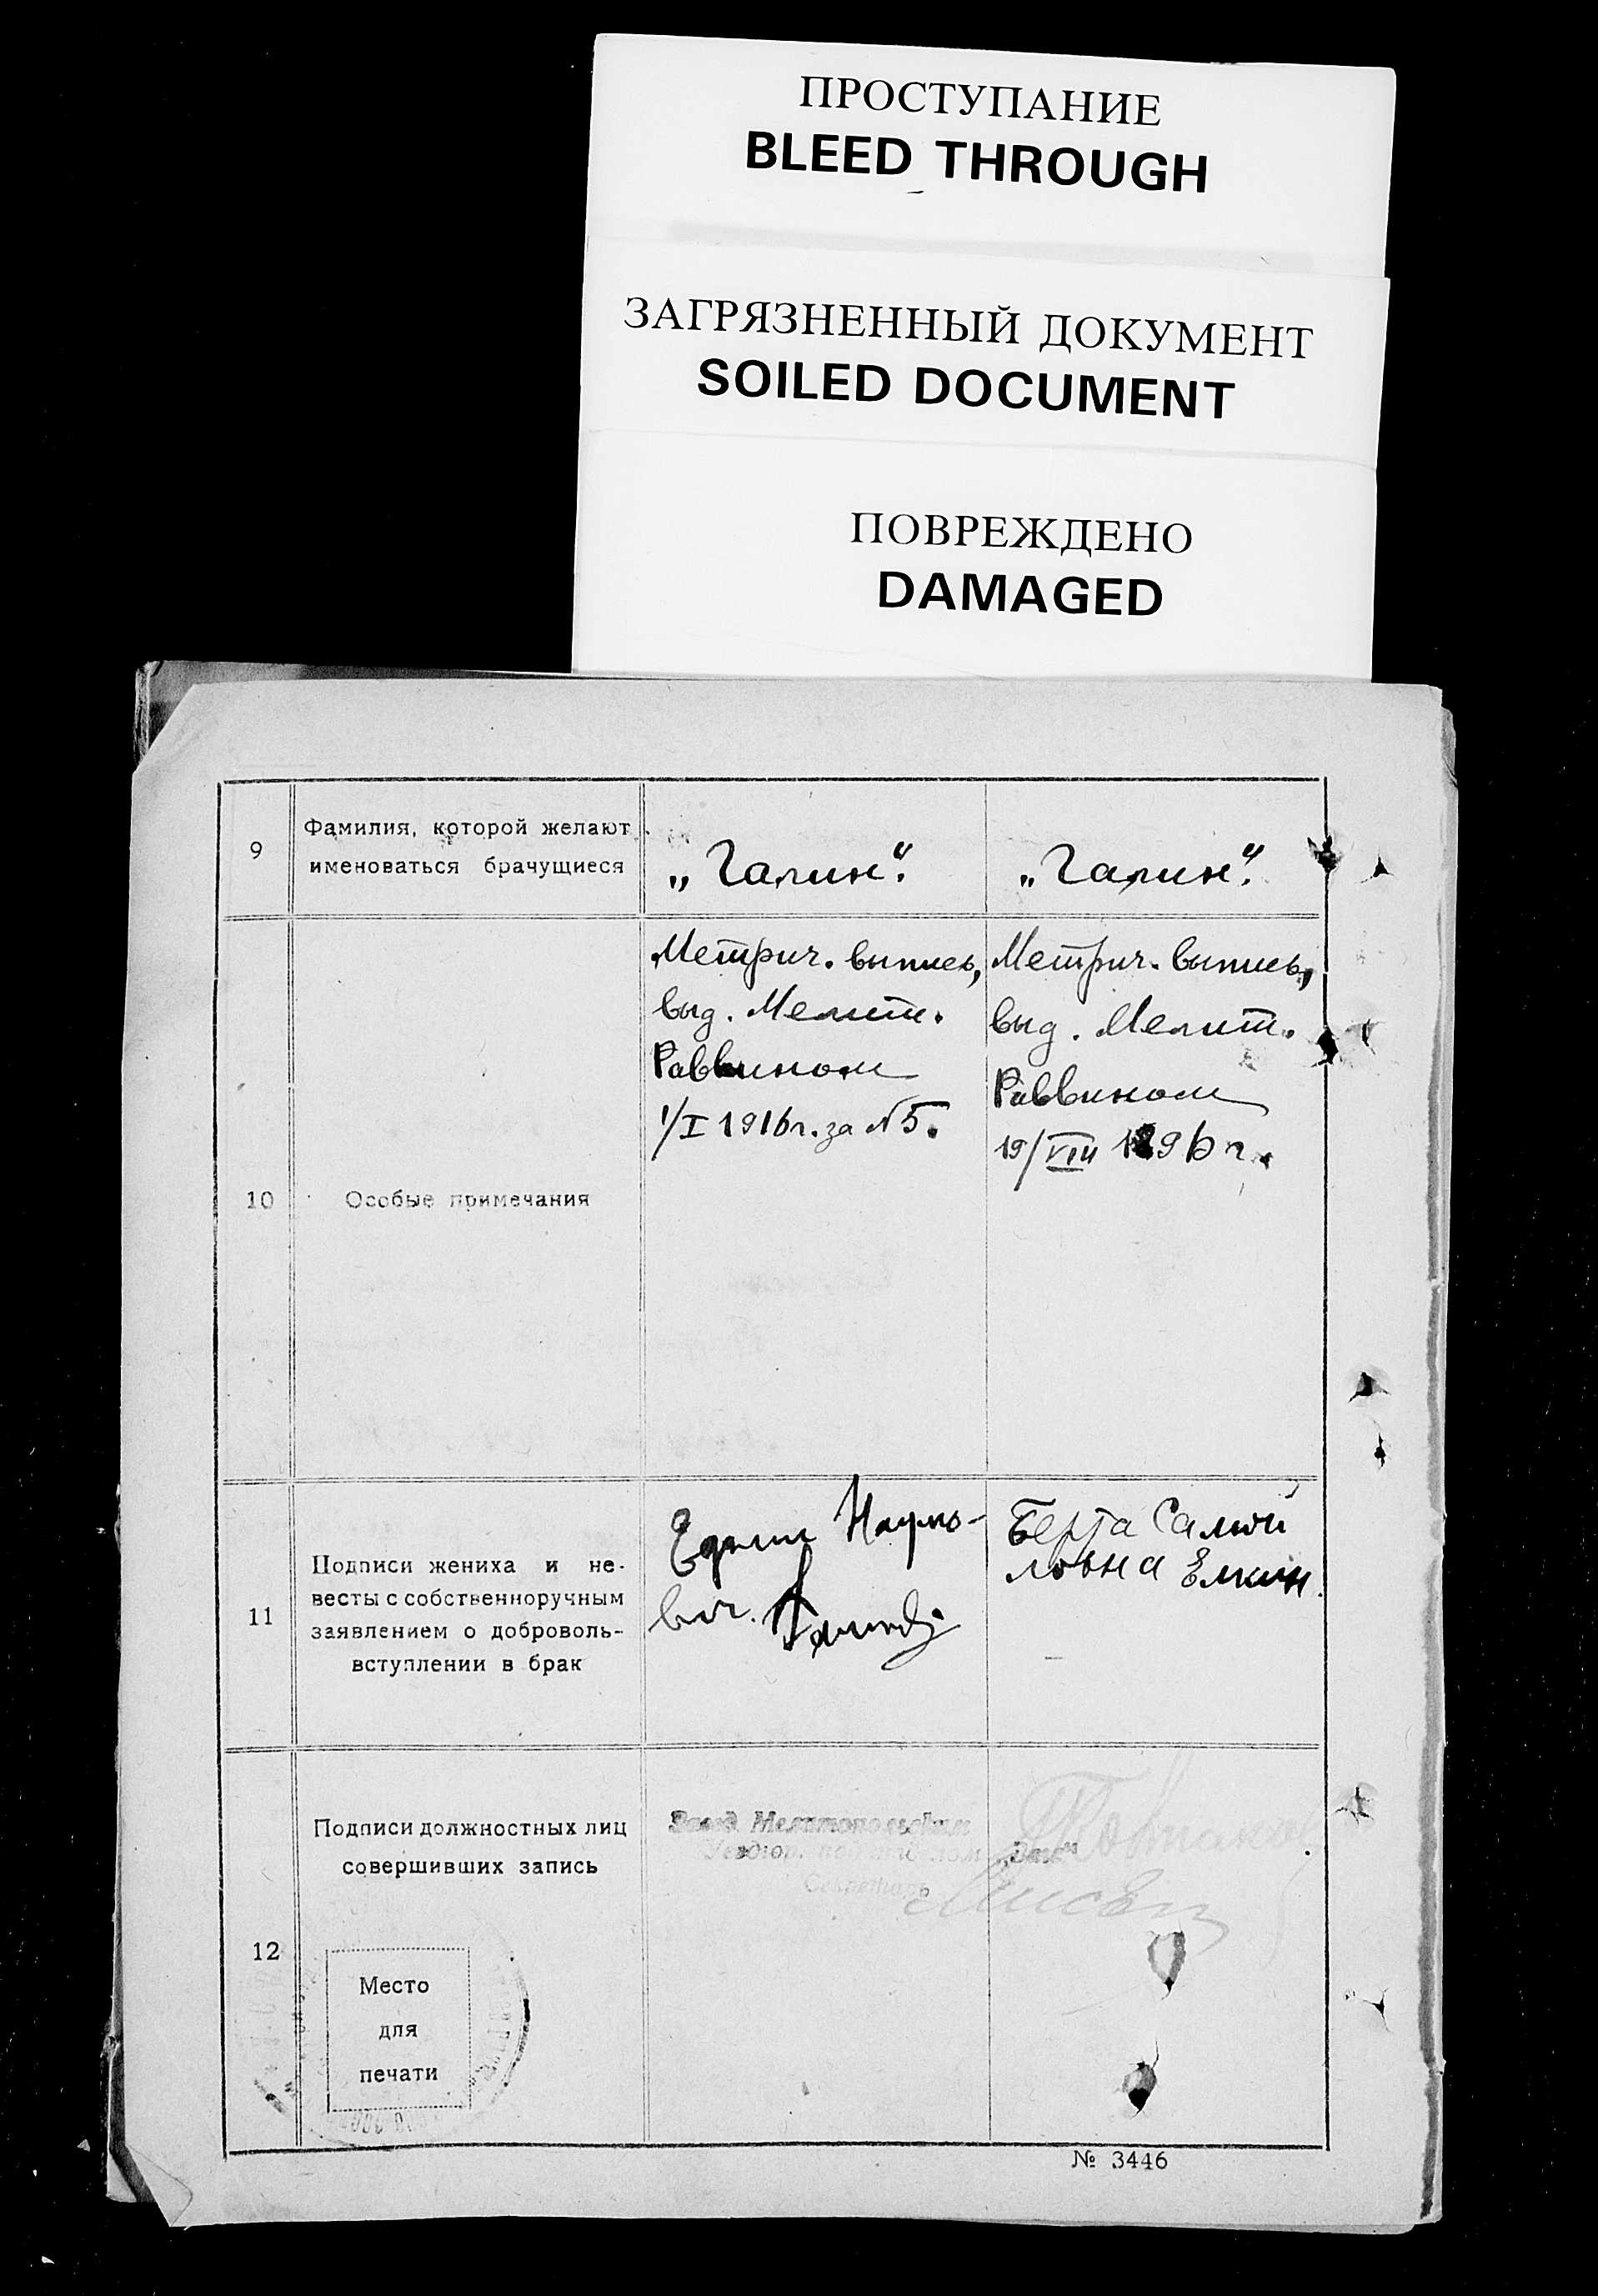 ПРОСТУПАНИЕ
BLEED THROUGH
ЗАГРЯЗНЕННЫЙ ДОКУМЕНТ
SOILED DOCUMENT
ПОВРЕЖДЕНО
DAMAGED
9
Фамилия, которой желают
именоваться брачущиеся
„Галин".
„Галин".
10
Особые примечания
Метрич. выпись,
выд. Мелит.
Раввином
1/I 1916 г. за № 5.
Метрич. выпись,
выд. Мелит.
Раввином
19/VIII 1896 г.
11
Подписи жениха и не-
весты с собственноручным
заявлением о доброволь-
вступлении в брак
Наумо-
вич.
Берта Самой
ловна Елкин.
12
Подписи должностных лиц
совершивших запись
Завед. Мелитопольским
Секретарь
Место
для
печати
№ 3446